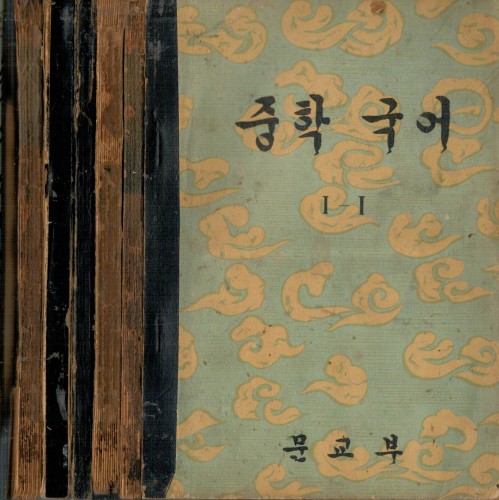 중학 국어
I—I
문교부